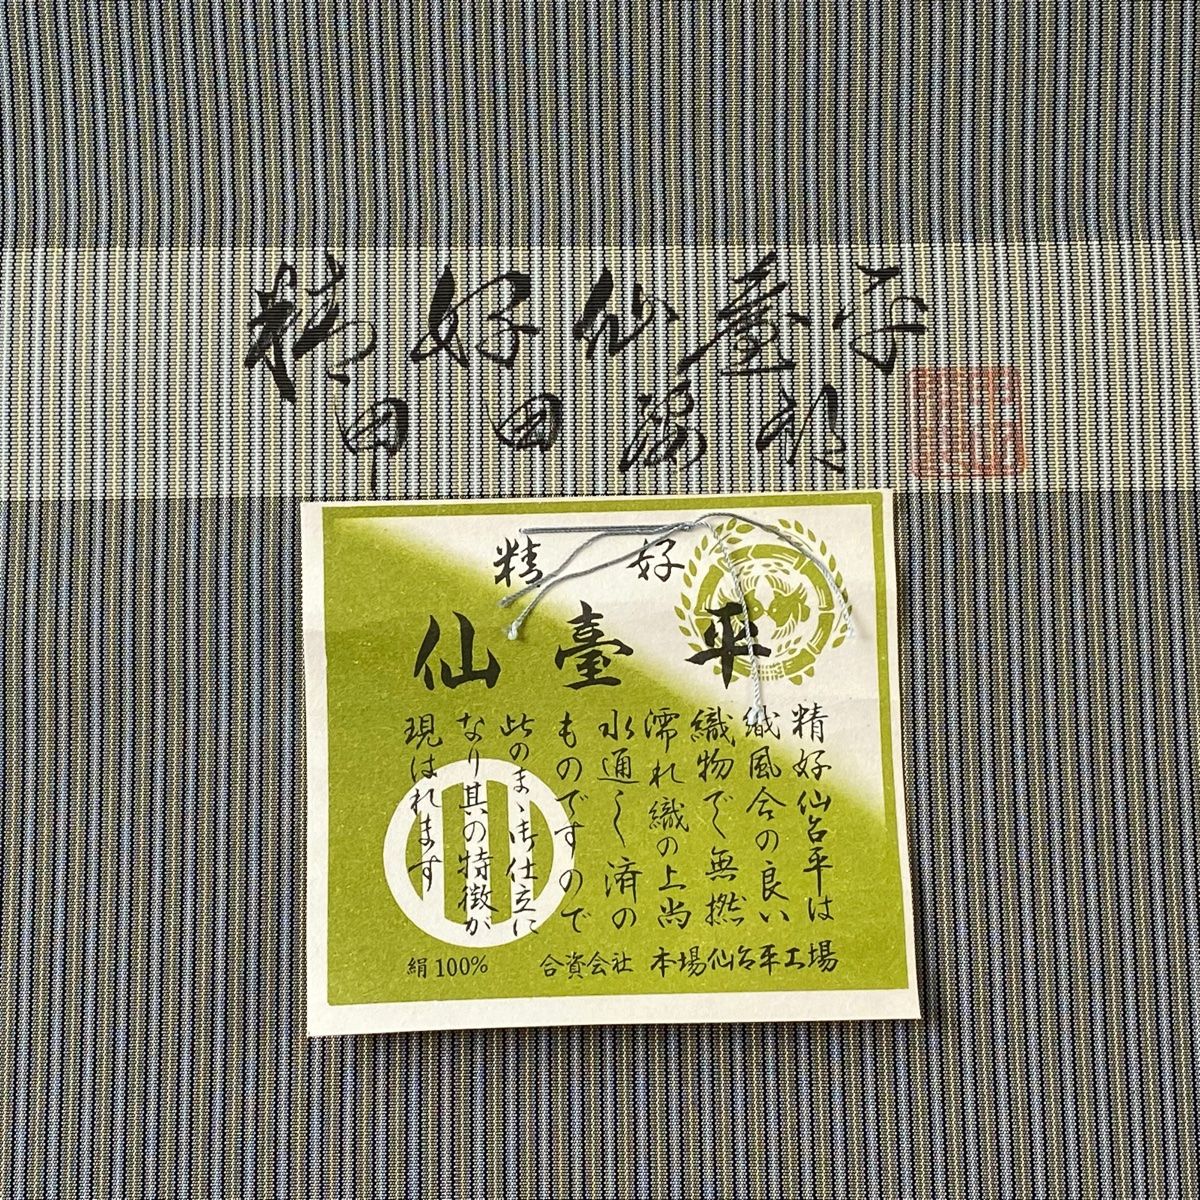 精好仙臺平
甲田綏郎
精好
仙臺平
精好仙台平は
織風合の良い
織物で無撚
濡れ織の上尚
水通し済の
ものですので
此のまゝ御仕立に
なり其の特徴が
現はれます
絹100%
合資会社 本場仙台平工場